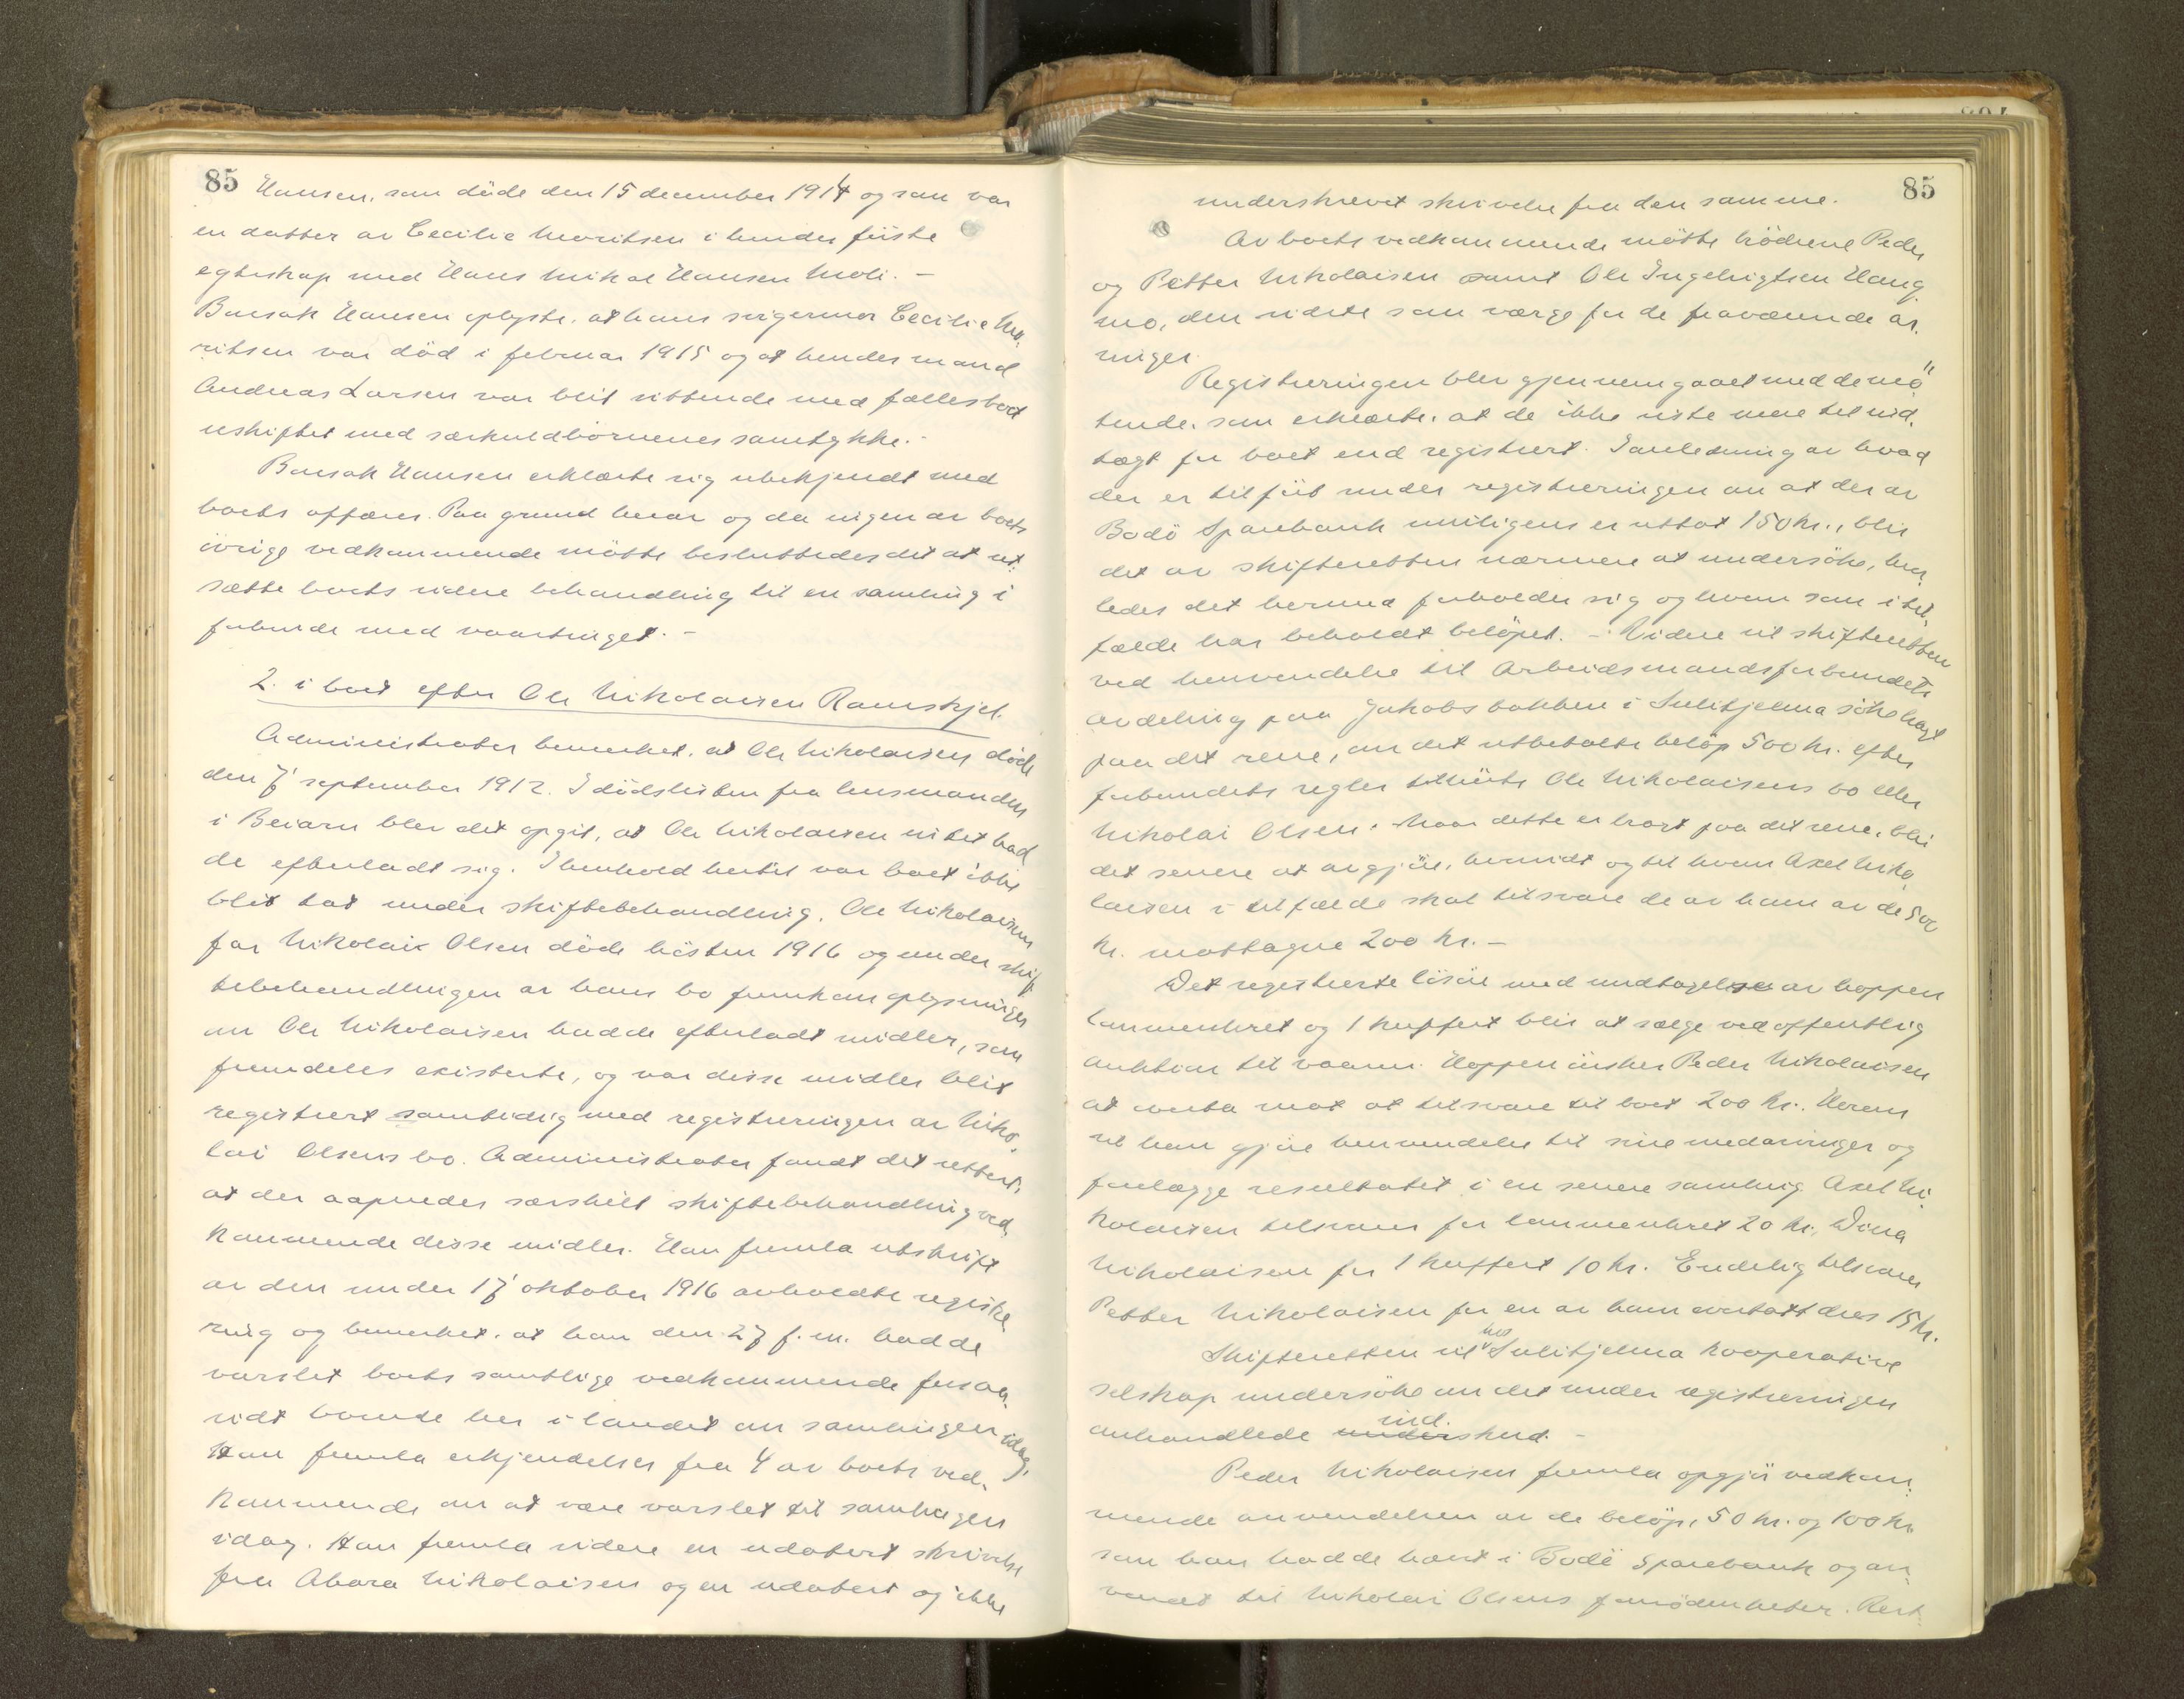 85
Hansen, som døde den 15 december 1914 og som var
en datter av Cecilie Moritsen i hendes første
egteskap med Hans Mikal Hansen Moli. –
Hansen oplyste, at hans svigermor Cecilie Mo-
ritsen var död i februar 1915 og at hendes mand
Andreas Larsen var blit sittende med fællesboet
uskiftet med særkuldbörnenes samtykke. –
Hansen erklærte sig ubekjendt med
boets affærer. Paa grund herav og da ingen av boets
övrige vedkommende mötte besluttedes det at ut-
sætte boets videre behandling til en samling i
forbinde med vaartinget. –
2. i boet efter Ole Nikolaisen Ramskjel.
Administrator bemerket, at Ole Nikolaisen døde
den 7' september 1912. I dödslisten fra lensmanden
i Beiarn blev det opgit, at Ole Nikolaisen intet had
de efterladt sig. I henhold hertil var boet ikke
blit tat under skiftebehandling. Ole Nikolaisens
far Nikolai Olsen döde hösten 1916 og under skif-
tebehandlingen av hans bo fremkom oplysninger
om Ole Nikolaisen hadde efterladt midler, som
fremdeles existerte, og var disse midler blit
registrert samtidig med registreringen av Niko-
lai Olsens bo. Administrator fandt det rettest,
at der aapnedes særskilt skiftebehandling ved-
kommende disse midler. Han fremla utskrift
av den under 17' oktober 1916 avholdte registre-
ring og bemerket, at han den 27 f. m. hadde
varslet boets samtlige vedkommende forsaa-
vidt boende her i landet om samlingen idag.
Han fremla erkjendelser fra 4 av boets ved-
kommende om at være varslet til samlingen
idag. Han fremla videre en udatert skrivelse
fra Abara Nikolaisen og en udatert og ikke
85
underskrevet skrivelse fra den samme.
Av boets vedkommende mötte brödrene Peder
og Petter Nikolaisen samt Ole Ingebrigtsen Haug-
mo, den sidste som værge for de fraværende ar-
vinger.
Registreringen blev gjennemgaaet med de mö-
tende, som erklærte, at de ikke viste mere til ind-
tægt for boet end registrert. I anledning av hvad
der er tilfört under registreringen om at der av
Bodö Sparebank muligens er uttat 150 kr., blir
det av skifteretten nærmere at undersöke, hvor-
ledes det hermed forholder sig og hvem som i til-
fælde har beholdt belöpet. – Videre vil skifteretten
ved henvendelse til Arbeidsmandsforbundets
avdeling paa Jakobsbakken i Sulitjelma söke bragt
paa det rene, om det utbetalte belöp 500 kr. efter
forbundets regler tilhörte Ole Nikolaisens bo eller
Nikolai Olsen. Naar dette er bragt paa det rene, blir
det senere at avgjöre, hvorvidt og til hvem Axel Niko-
laisen i tilfælde skal tilsvare de av ham av de 500
kr. mottagne 200 kr. –
Det registrerte lösöre med undtagelse av hoppen
lommeuhret og 1 kuffert blir at sælge ved offentlig
auktion til vaaren. Hoppen önsker Peder Nikolaisen
at overta mot at tilsvare til boet 200 kr. Herom
vil han gjöre henvendelse til sine medarvinger og
forelægge resultatet i en senere samling. Axel Ni-
kolaisen tilsvarer for lommeuhret 20 kr., Dina
Nikolaisen for 1 kuffert 10 kr. Endelig tilsvarer
Petter Nikolaisen for en av ham overtatt dres 15 kr.
Skifteretten vil hos Sulitjelma kooperative
selskap undersöke om det under registreringen
omhandlede indskud. –
Peder Nikolaisen fremla opgjör vedkom-
mende anvendelsen av de belöp, 50 kr. og 100 kr.
som han hadde hævt i Bodö Sparebank og an-
vendt til Nikolai Olsens fornödenheter. Rest